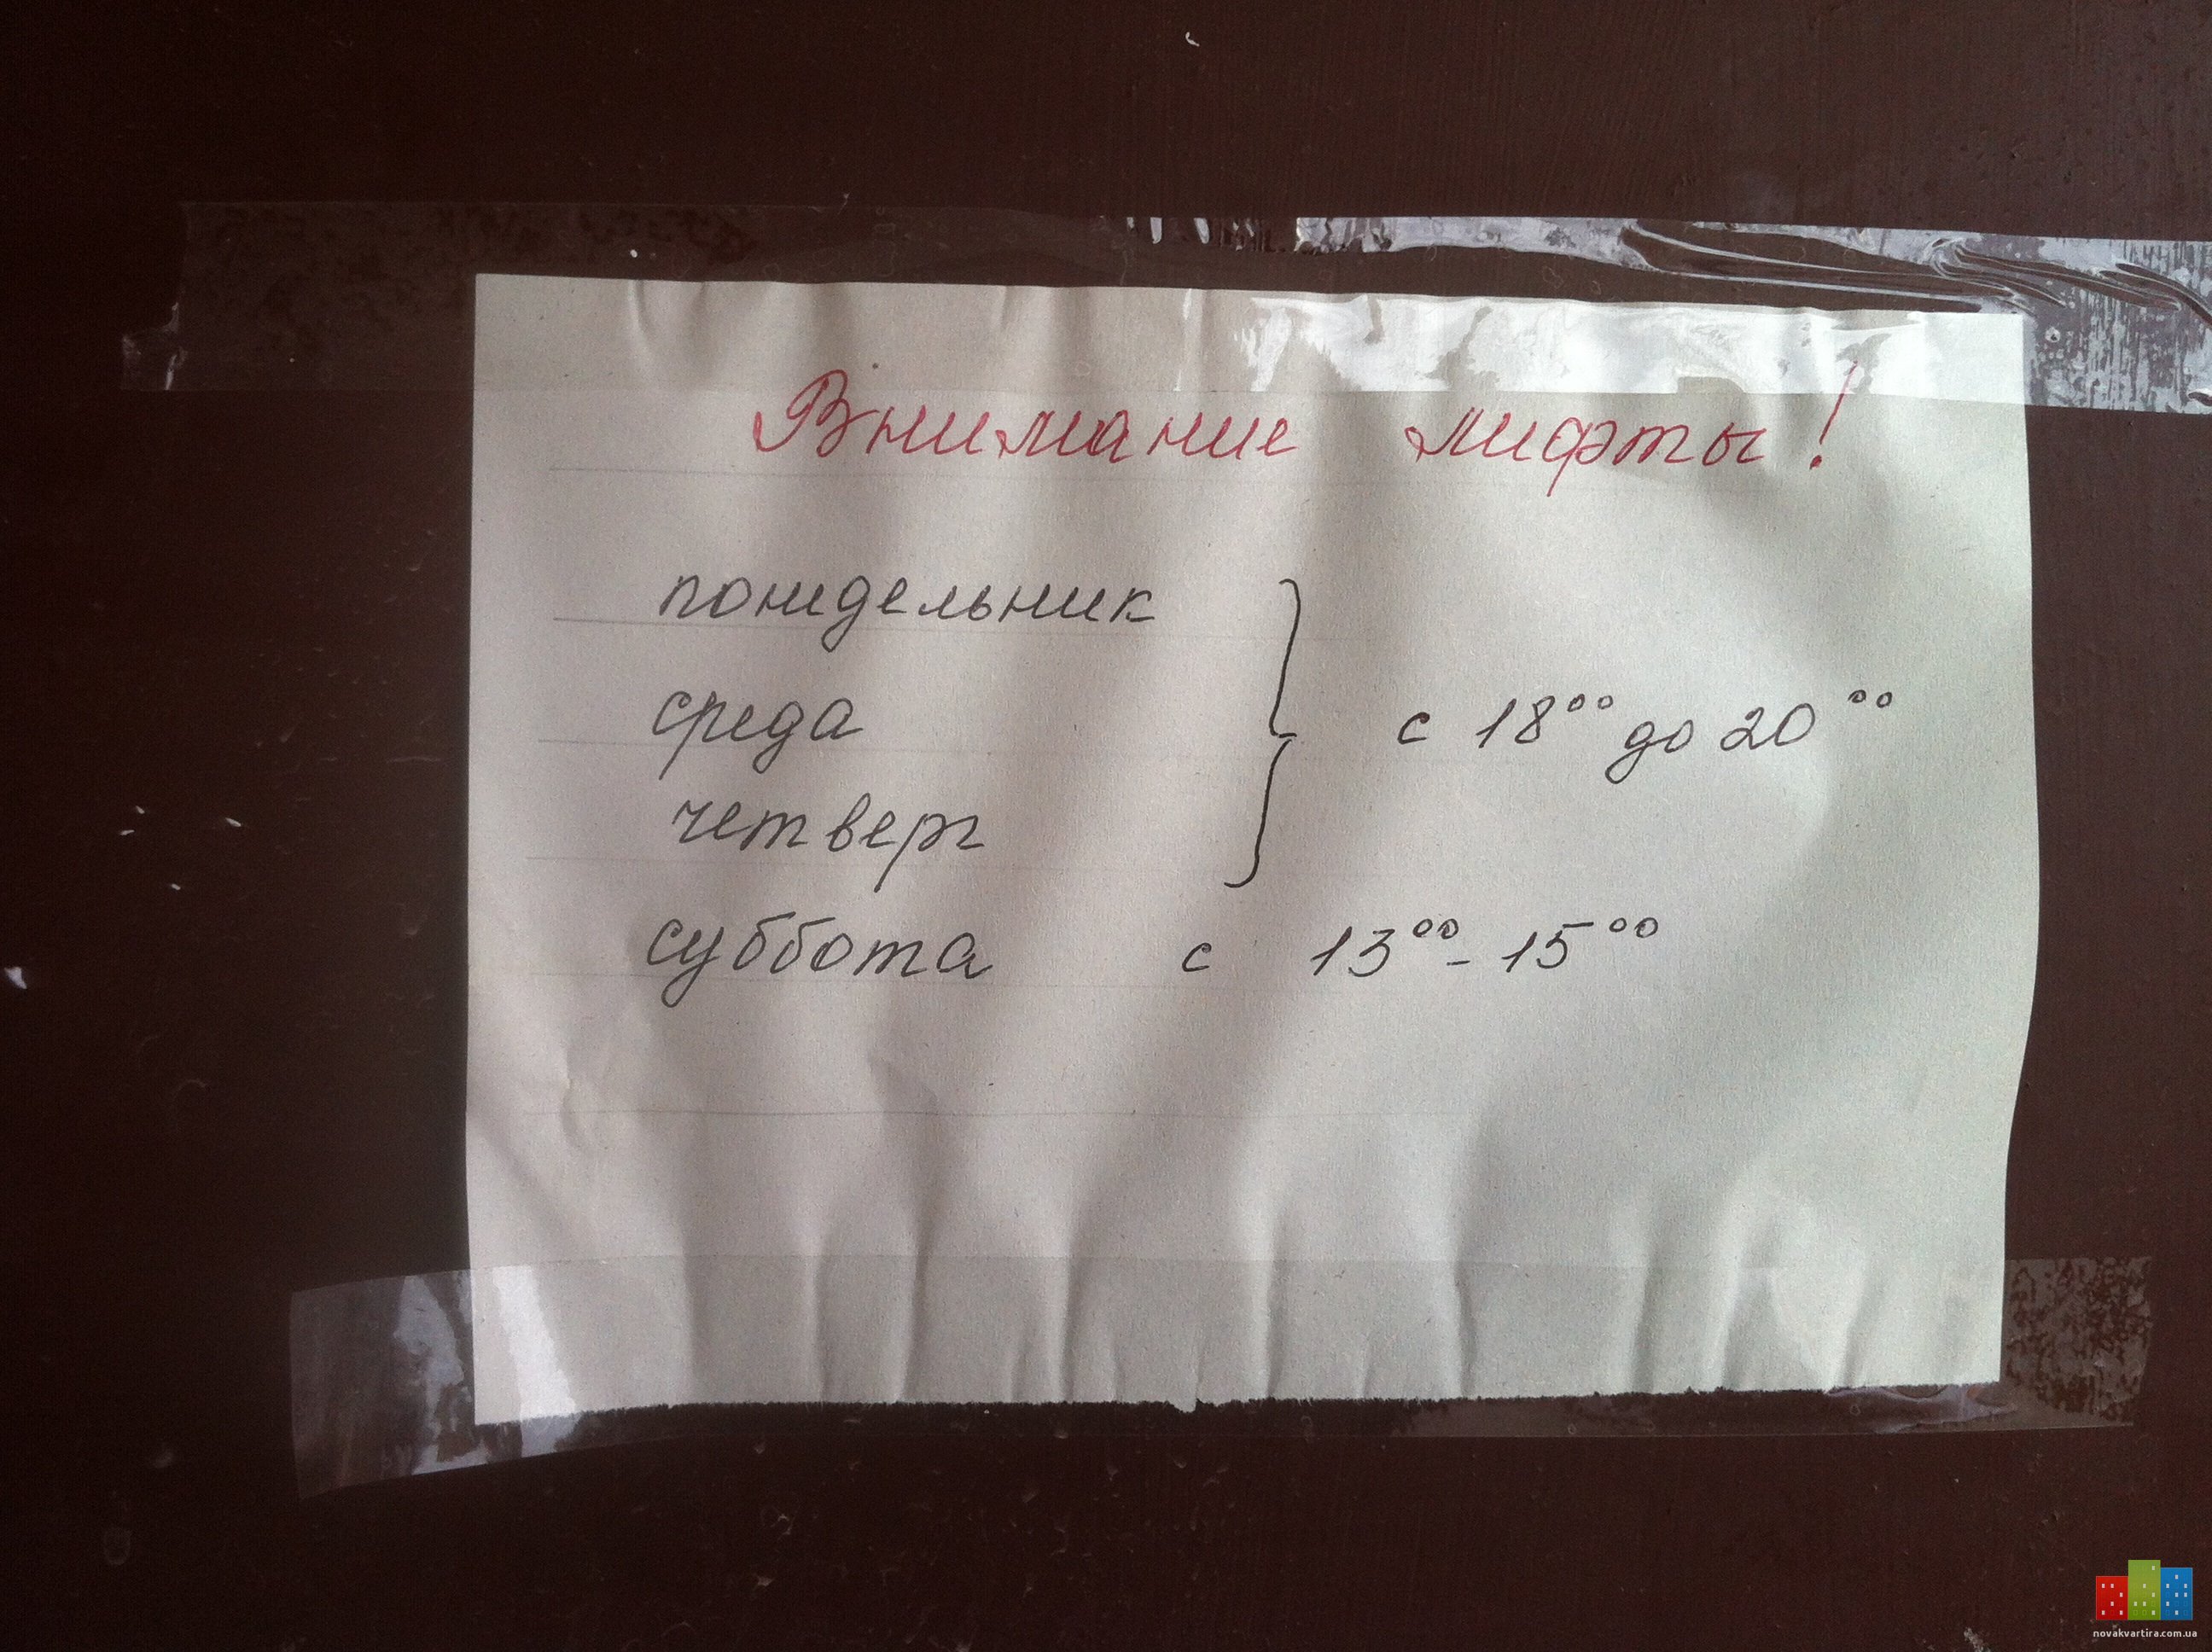 Внимание лифты!
понидельник
среда
с 18⁰⁰ до 20⁰⁰
четверг
суббота с 13⁰⁰ - 15⁰⁰
novakvartira.com.ua